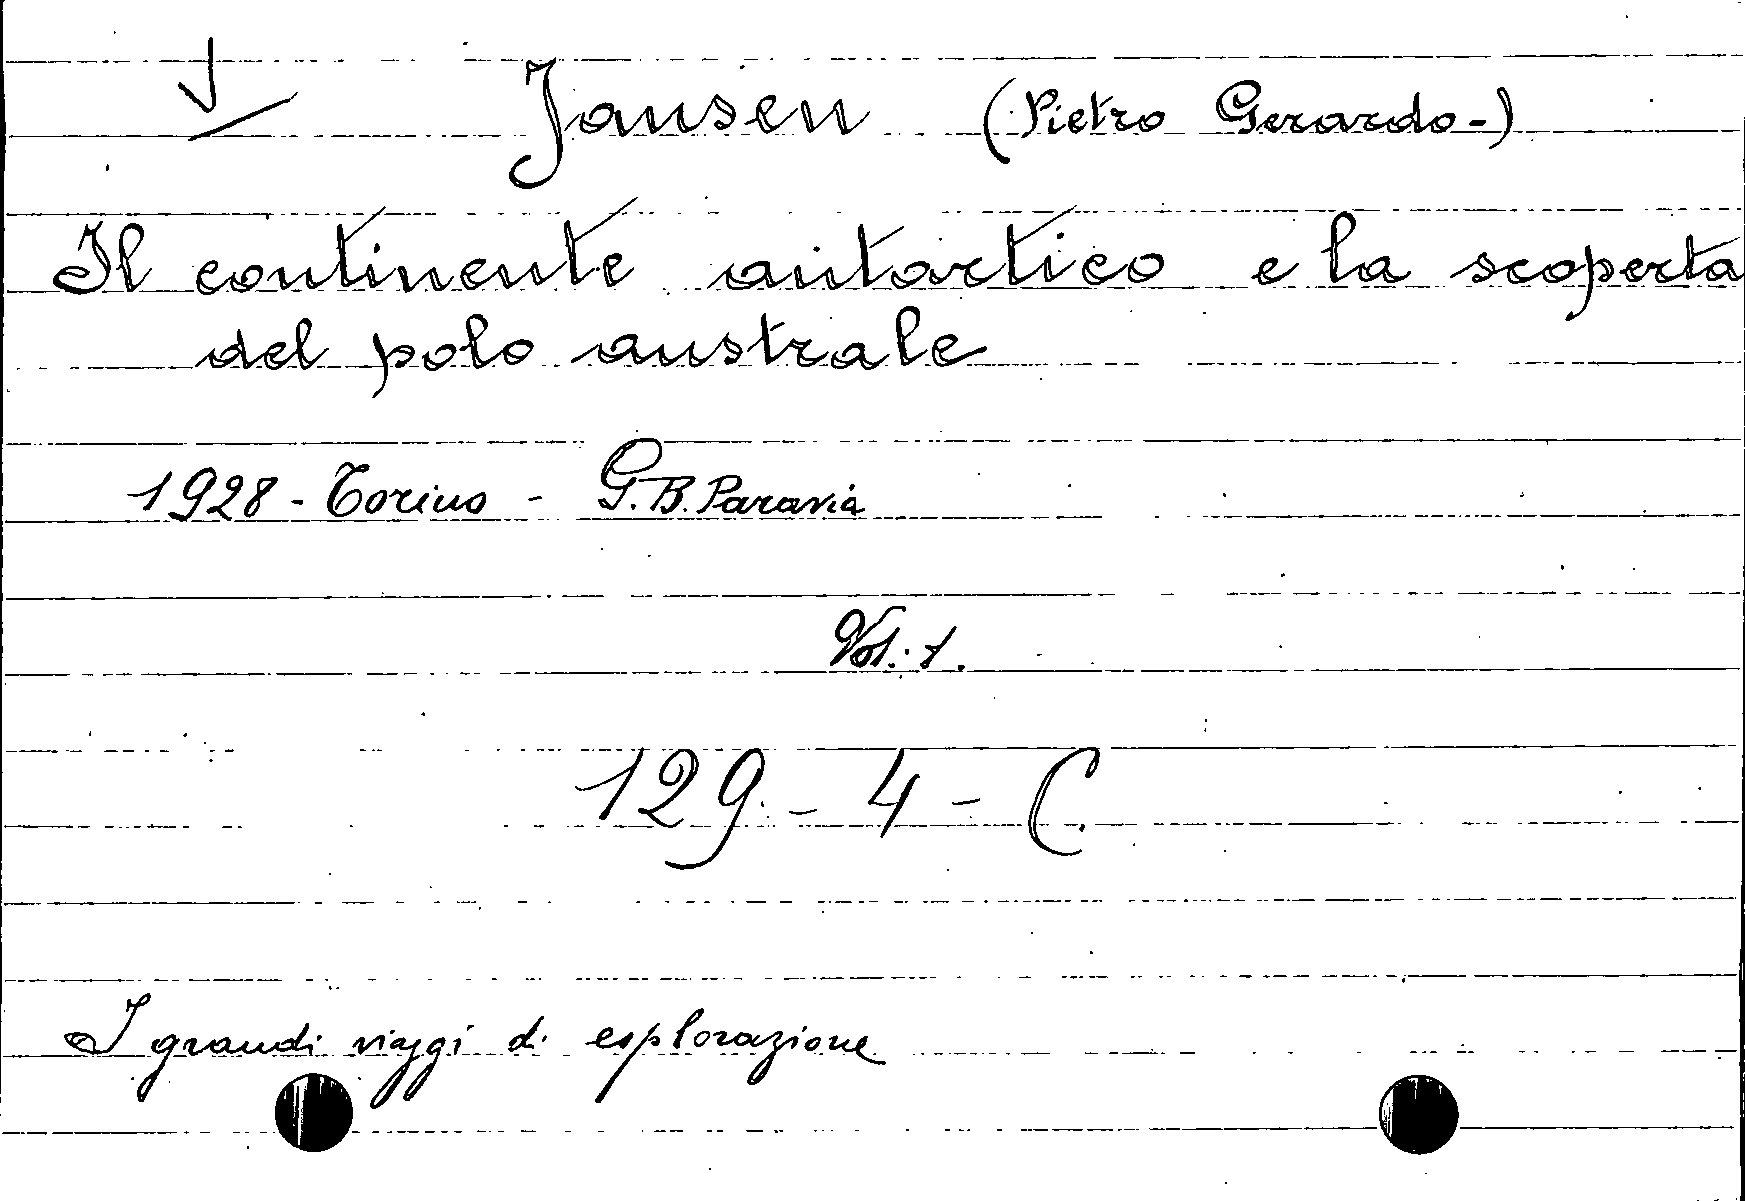 Jansen (Pietro Gerardo-)
Il continente antartico e la scoperta
del polo australe
1928 - Torino - G. B. Paravia
Vol: 1.
129 - 4 - C
I grandi viaggi di esplorazione